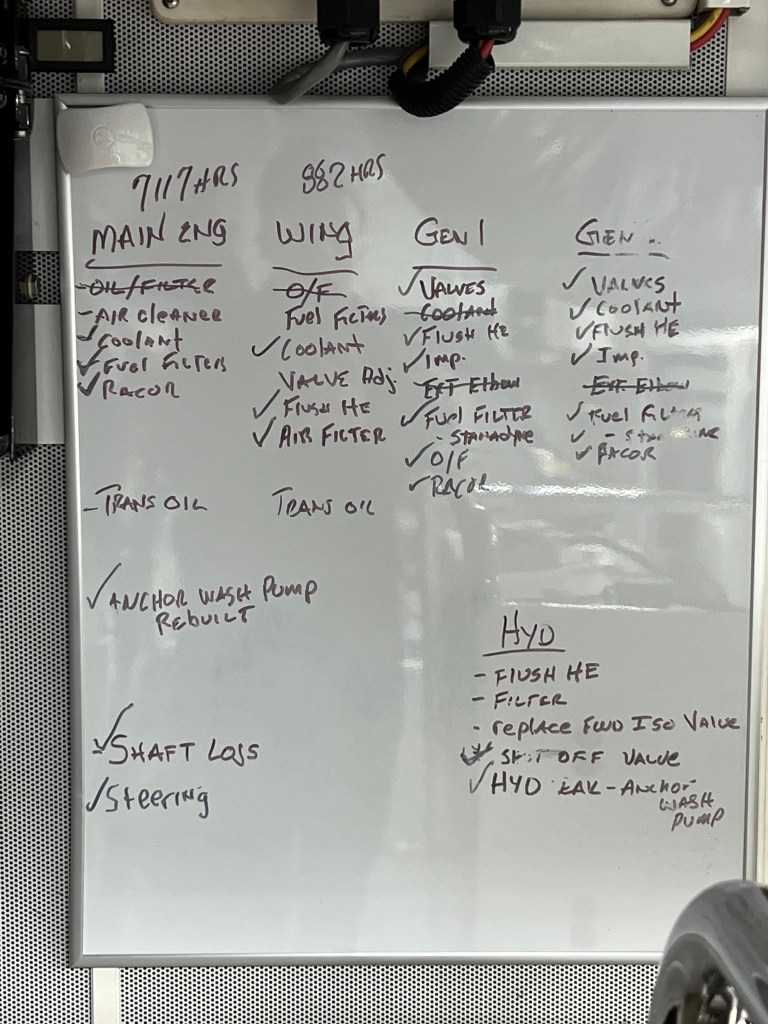 7117 HRS
982 HRS
MAIN ENG
OIL/FILTER
- AIR CLEANER
✓ COOLANT
✓ FUEL FILTERS
✓ RACOR
- TRANS OIL
✓ ANCHOR WASH PUMP
REBUILT
✓ SHAFT LOGS
✓ Steering
WING
O/F
Fuel FILTERS
✓ COOLANT
VALVE Adj
✓ FLUSH HE
✓ AIR FILTER
TRANS OIL
GEN 1
✓ VALVES
COOLANT
✓ FLUSH HE
✓ IMP.
EXT Elbow
✓ FUEL FILTER
- STANADYNE
✓ O/F
✓ RACOR
GEN
✓ VALVES
✓ COOLANT
✓ FLUSH HE
✓ IMP.
Ext. Elbow
✓ Fuel
✓ RACOR
HYD
- FLUSH HE
- FILTER
- replace FWD ISO Valve
OFF VALVE
✓ HYD - Anchor
WASH
PUMP